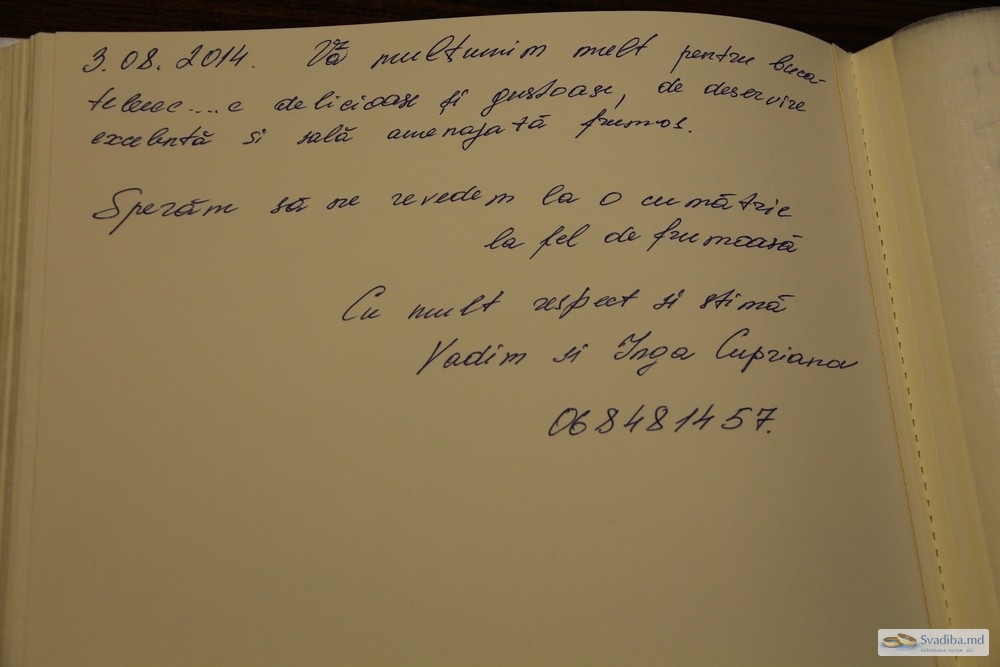 3.08.2014. Vă mulțumim mult pentru buca-
tele....e delicioase și gustoase, de deservire
excelentă si sală amenajată frumos.
Sperăm să ne revedem la o cumătrie
la fel de frumoasă
Cu mult respect si stimă
Vadim si Inga Cupriana
068481457.
Svadiba.md